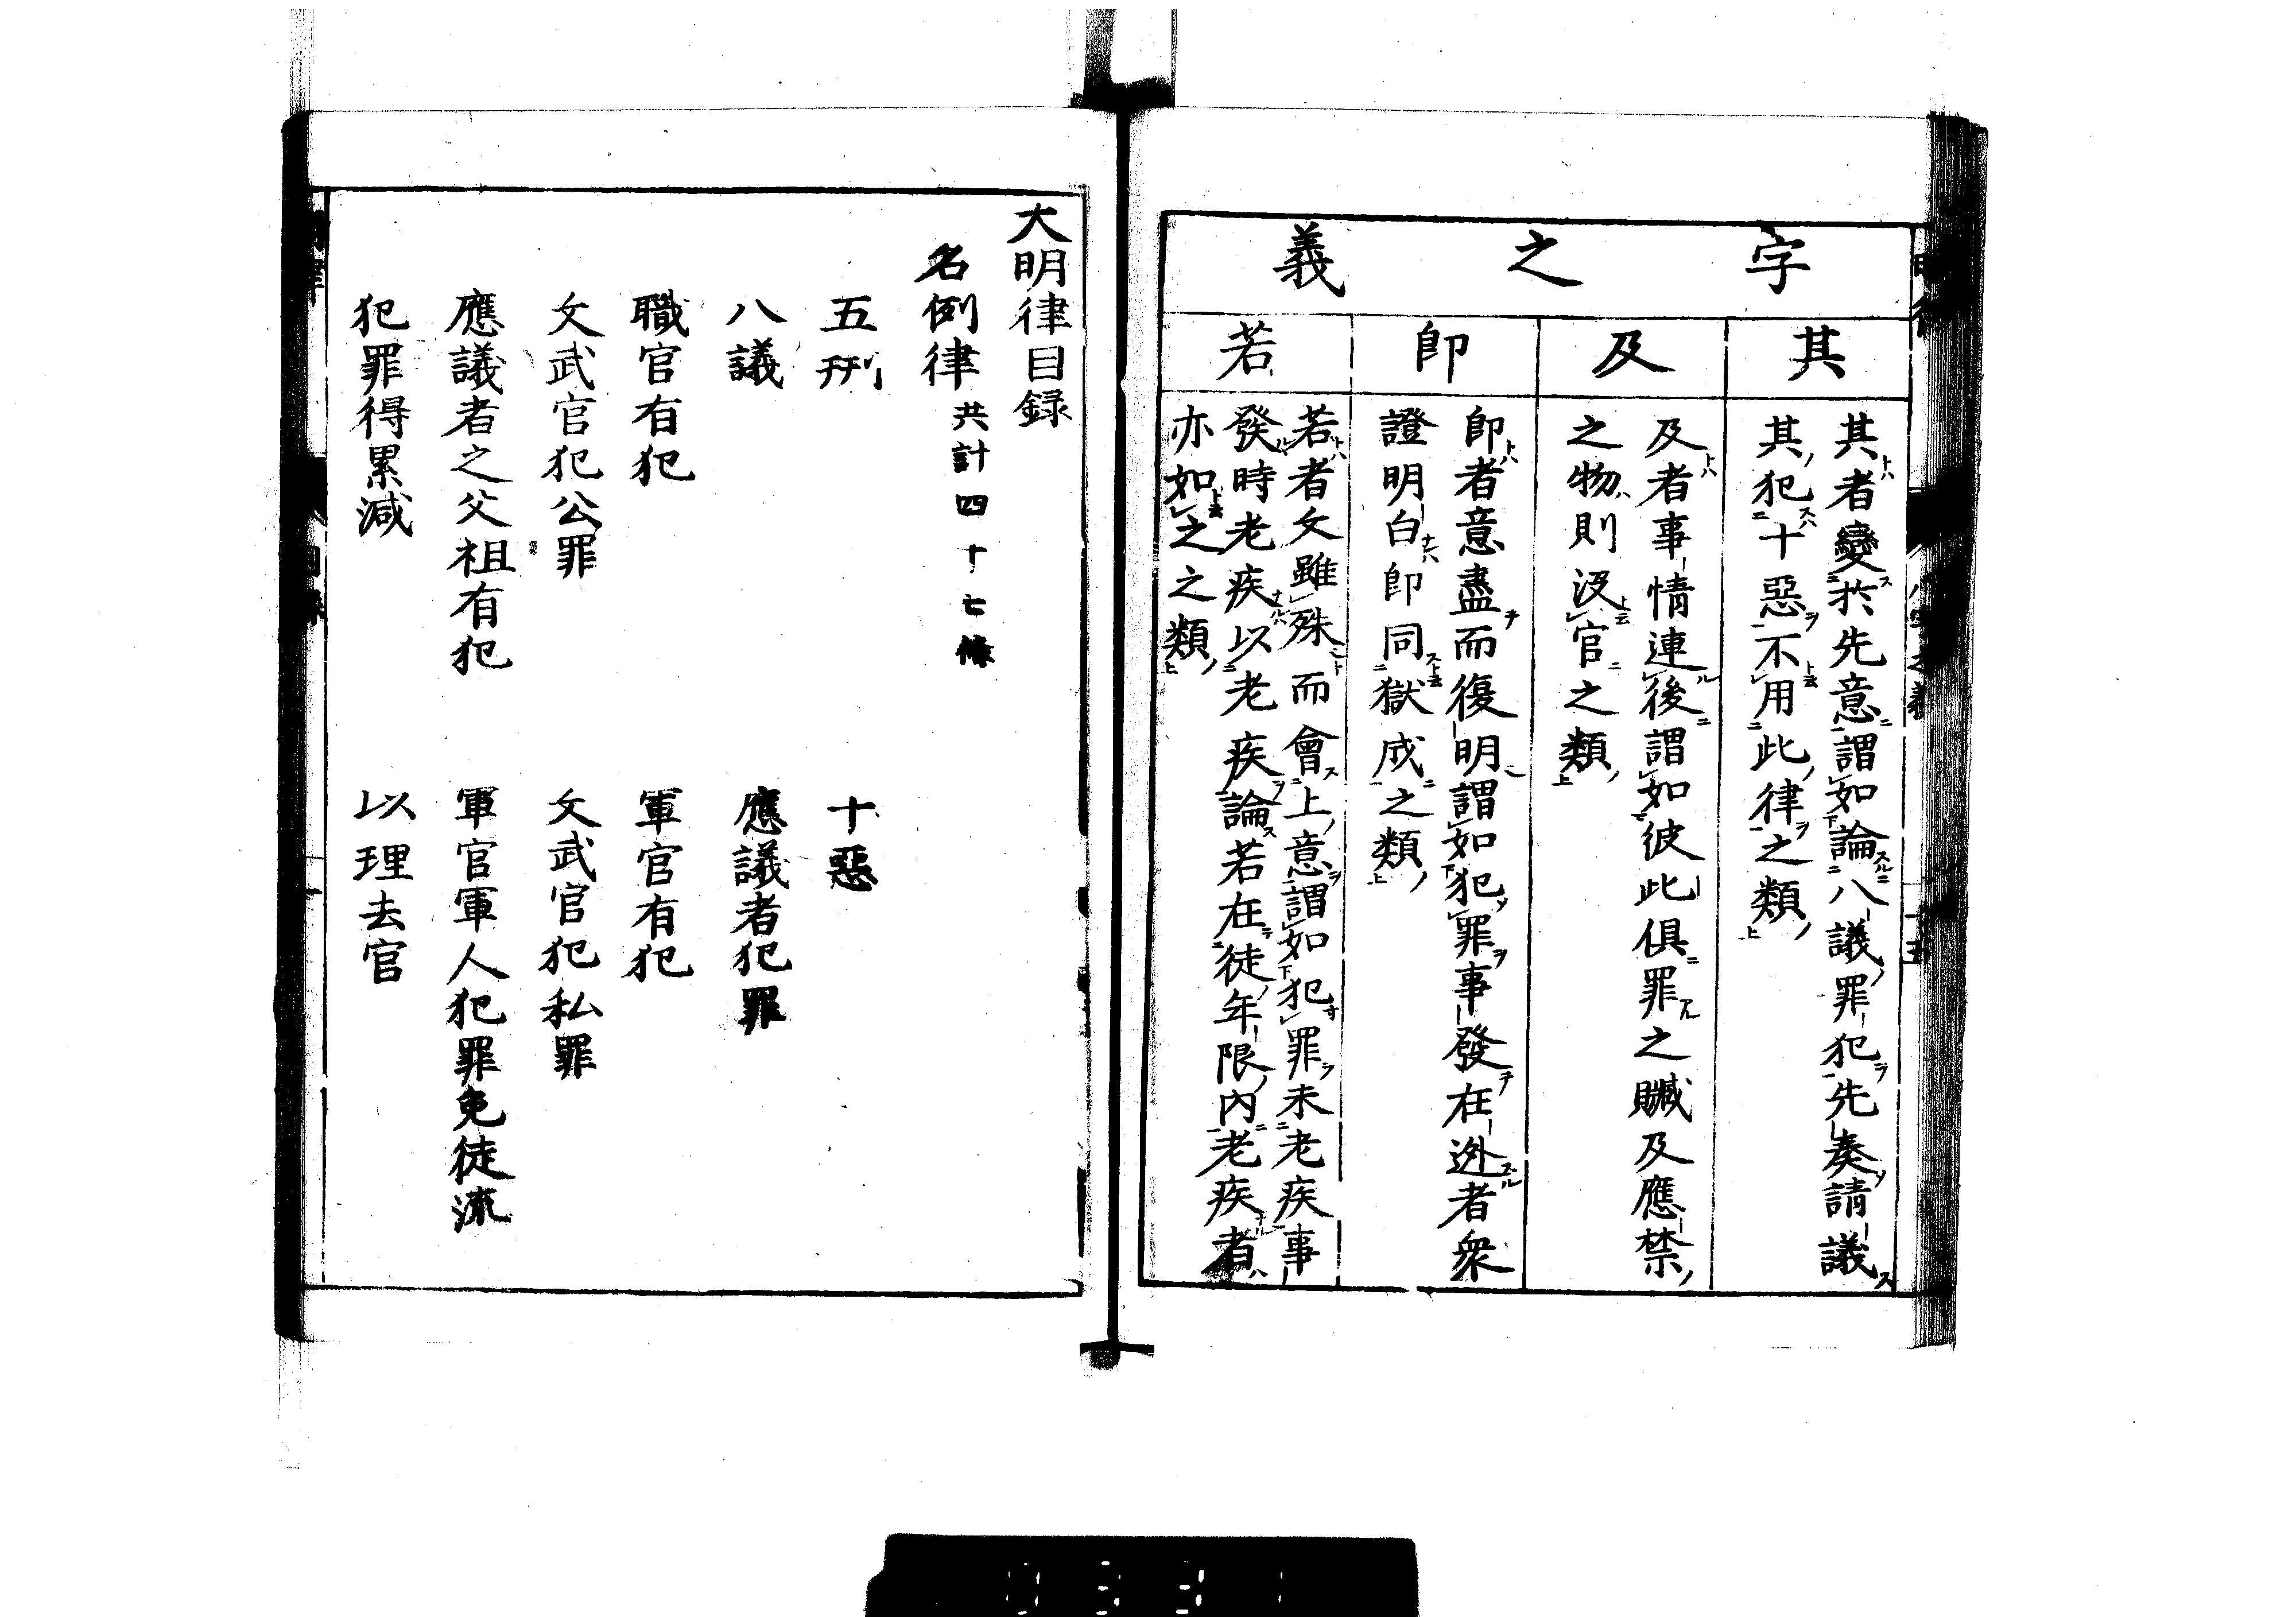 字之義
其
其者變於先意謂如論八議罪犯先奏請議
其犯十惡不用此律之類
及
及者事情連後謂如彼此俱罪之贓及應禁
之物則沒官之類
即
即者意盡而復明謂如犯罪事發在逃者衆
證明白即同獄成之類
若
若者文雖殊而會上意謂如犯罪未老疾事
發時老疾以老疾論若在徒年限內老疾者
亦如之之類
大明律目録
名例律 共計四十七條
五刑 十惡
八議 應議者犯罪
職官有犯 軍官有犯
文武官犯公罪 文武官犯私罪
應議者之父祖有犯 軍官軍人犯罪免徒流
犯罪得累減 以理去官